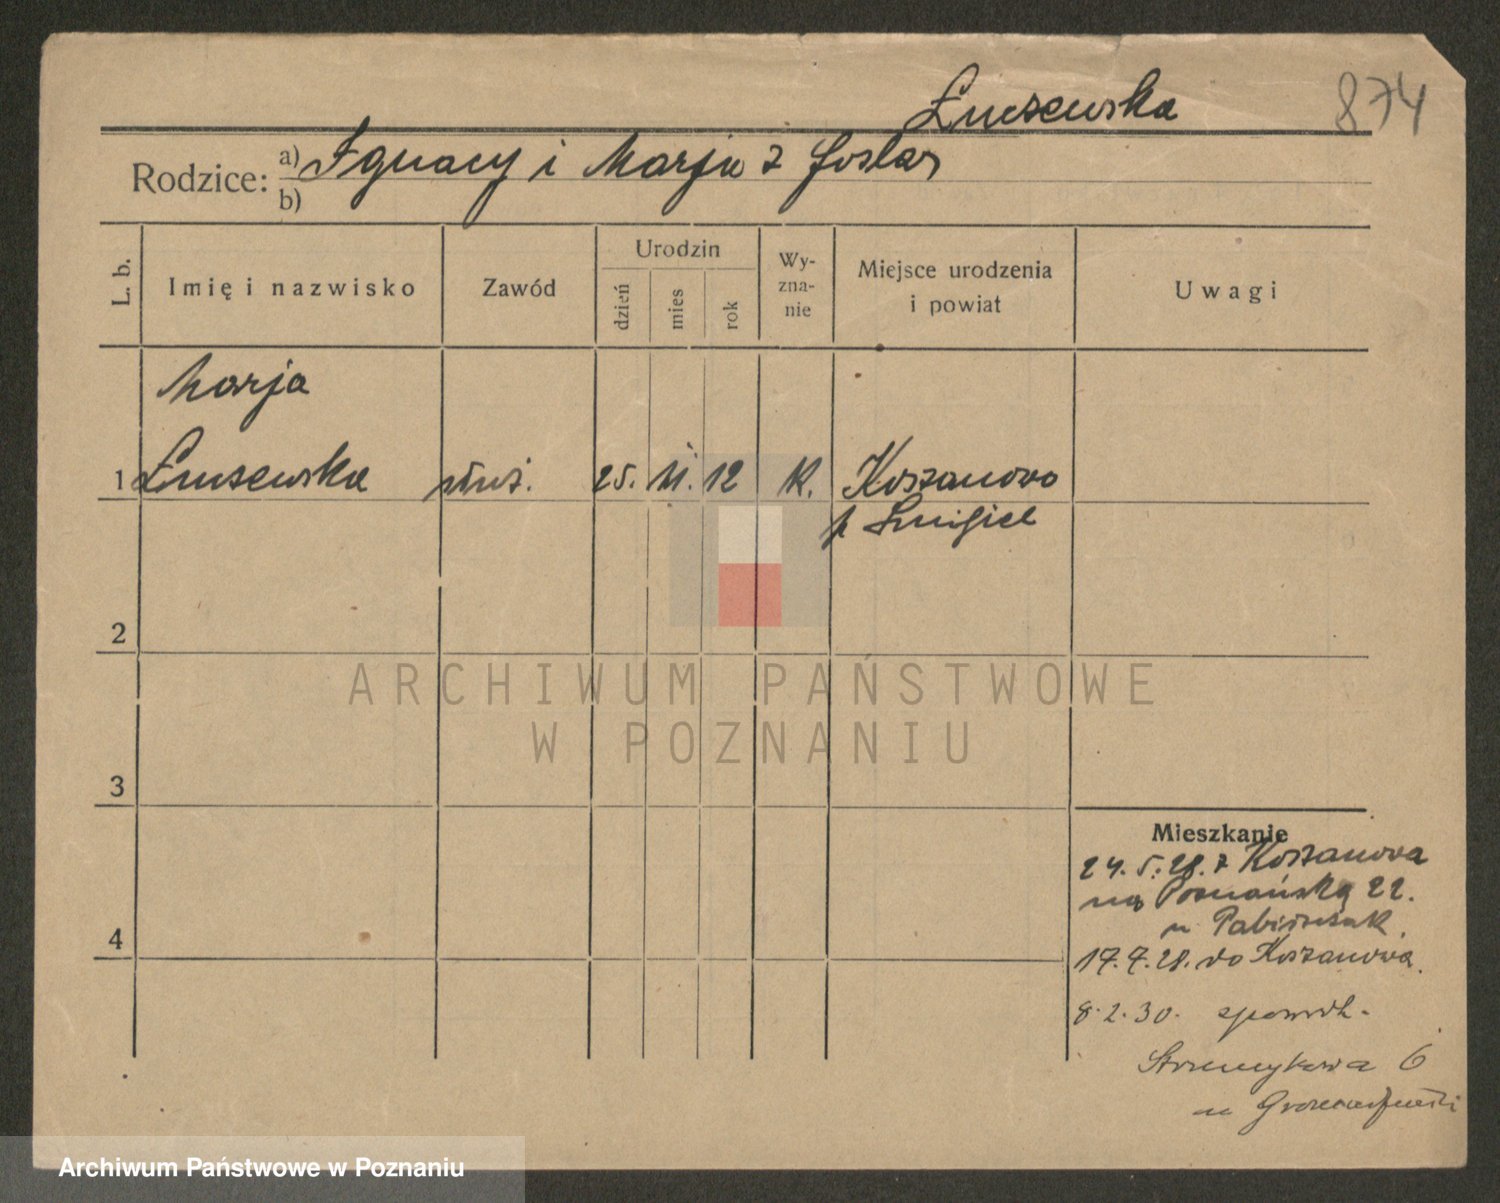 Łuczewska
874
Rodzice: a) Ignacy i Marja z
b)
L. b.
Imię i nazwisko
Zawód
Urodzin
dzień
mies
rok
Wy-
zna-
nie
Miejsce urodzenia
i powiat
Uwagi
Marja
1 Łuczewska służ. 25. 11. 12 K. Koszanowo
p Śmigiel
2
3
4
Mieszkanie
24.5.28. z Koszanowa
na Poznańską 22.
u
17.7.28. do Koszanowa.
8.2.30. z powrót.
6
u
ARCHIWUM PAŃSTWOWE
W POZNANIU
Archiwum Państwowe w Poznaniu